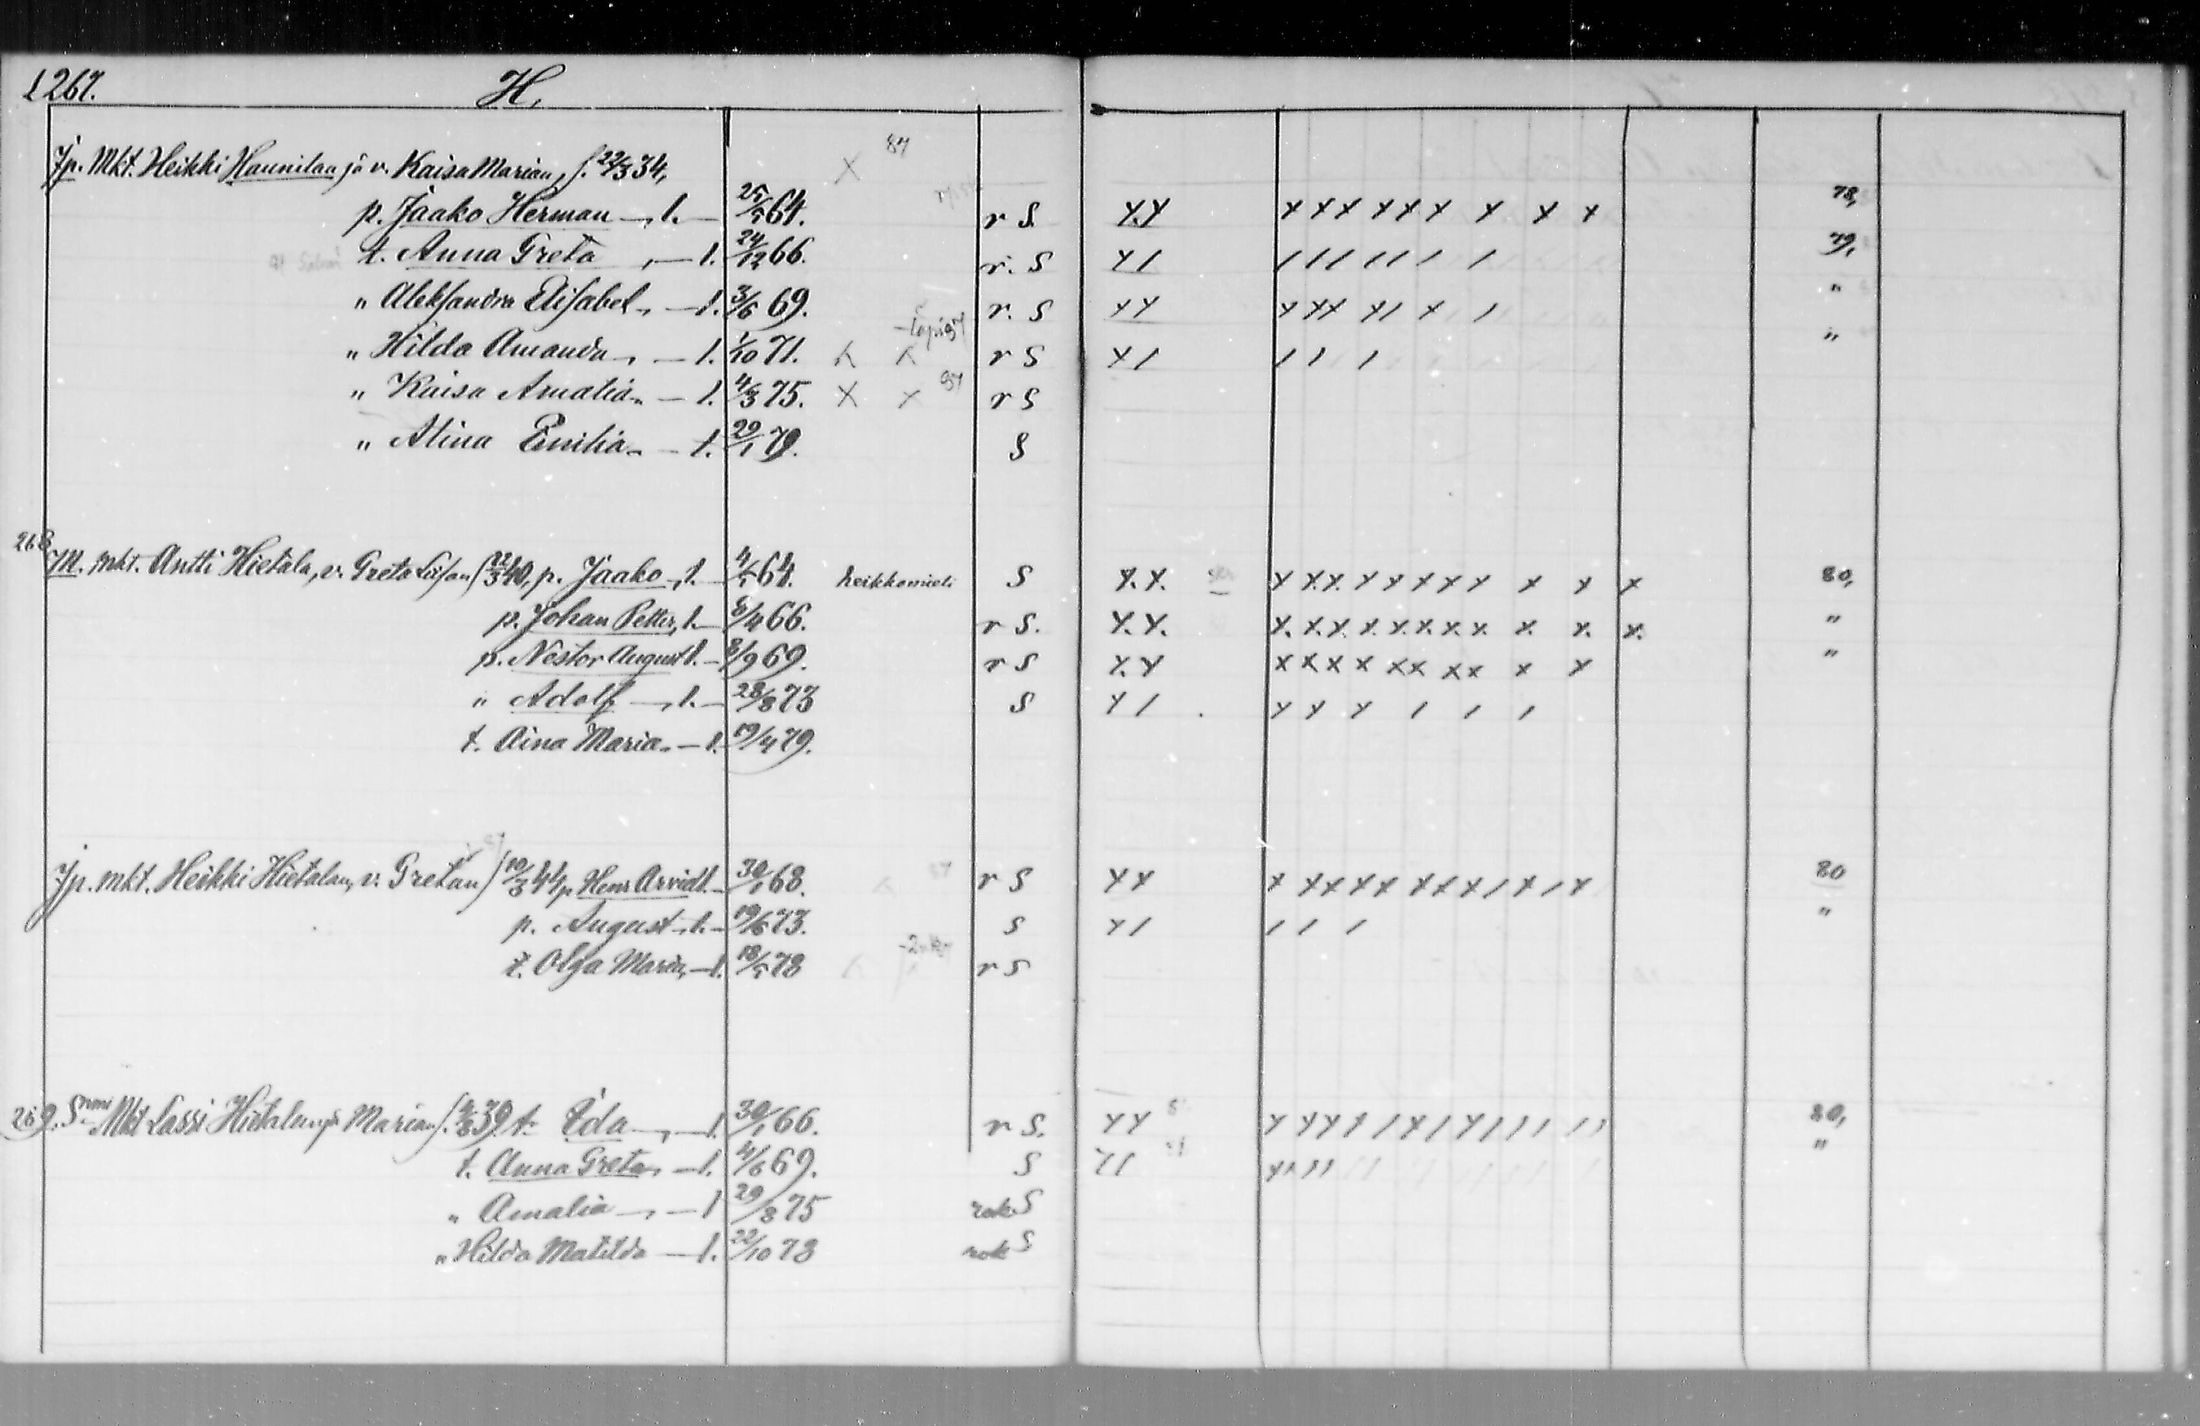 1267. H.
Jp. Mkt. Heikki Haunilan ja v. Kaisa Marian, f. 22/3 34, X 87
p. Jaako Herman — l. — 25/5 64. r S. X.X X X X X X X X X X 78,
t. Anna Greta — l. 24/12 66. r. S X / / / / / / / / 79,
" Aleksandra Elisabet — l. 3/6 69. r. S X X X X X X / X / "
" Hilda Amanda — l. 1/10 71. X X r S X / / / / "
" Kaisa Amalia — l. 4/3 75. X X 97 r S
" Alina Emilia — l. 29/1 79. S
268 JM. mkt. Antti Hietala, v. Greta Liisan f 22/3 40, p. Jaako, l. — 4/5 64. heikkomieli S X.X. X X X X X X X X X X X 80,
p. Johan Petter, l. — 8/4 66. r S. X.X. X. X. X. X. X. X. X. X. X. X. X. "
p. Nestor August l. — 8/9 69. r S X.X X X X X X X X X X X "
" Adolf —, l. — 28/8 73 S X / X X X / / /
t. Aina Maria — l. 19/4 79.
Jp. mkt. Heikki Hietalan, v. Gretan f 10/3 44 p. Henr Arvid l. — 30/1 68. r S X X X X X X X X X X / X / X 80
p. August — l. — 19/6 73. S X / / / / "
t. Olga Maria, — l. 18/5 78 r S
269. Snmi Mkt Lassi Hietalan ja Marian f. 2/8 39 t. Ida —, — l. 30/1 66. r S. X X X X X X / X / X / / / / / 80,
t. Anna Greta — l. 4/6 69. S X / X / / / "
" Amalia —, — l 29/8 75 rok S
" Hilda Matilda — l. 22/10 78 rok S